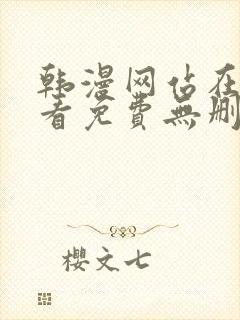 韩漫网站在
看免費無删
櫻文七